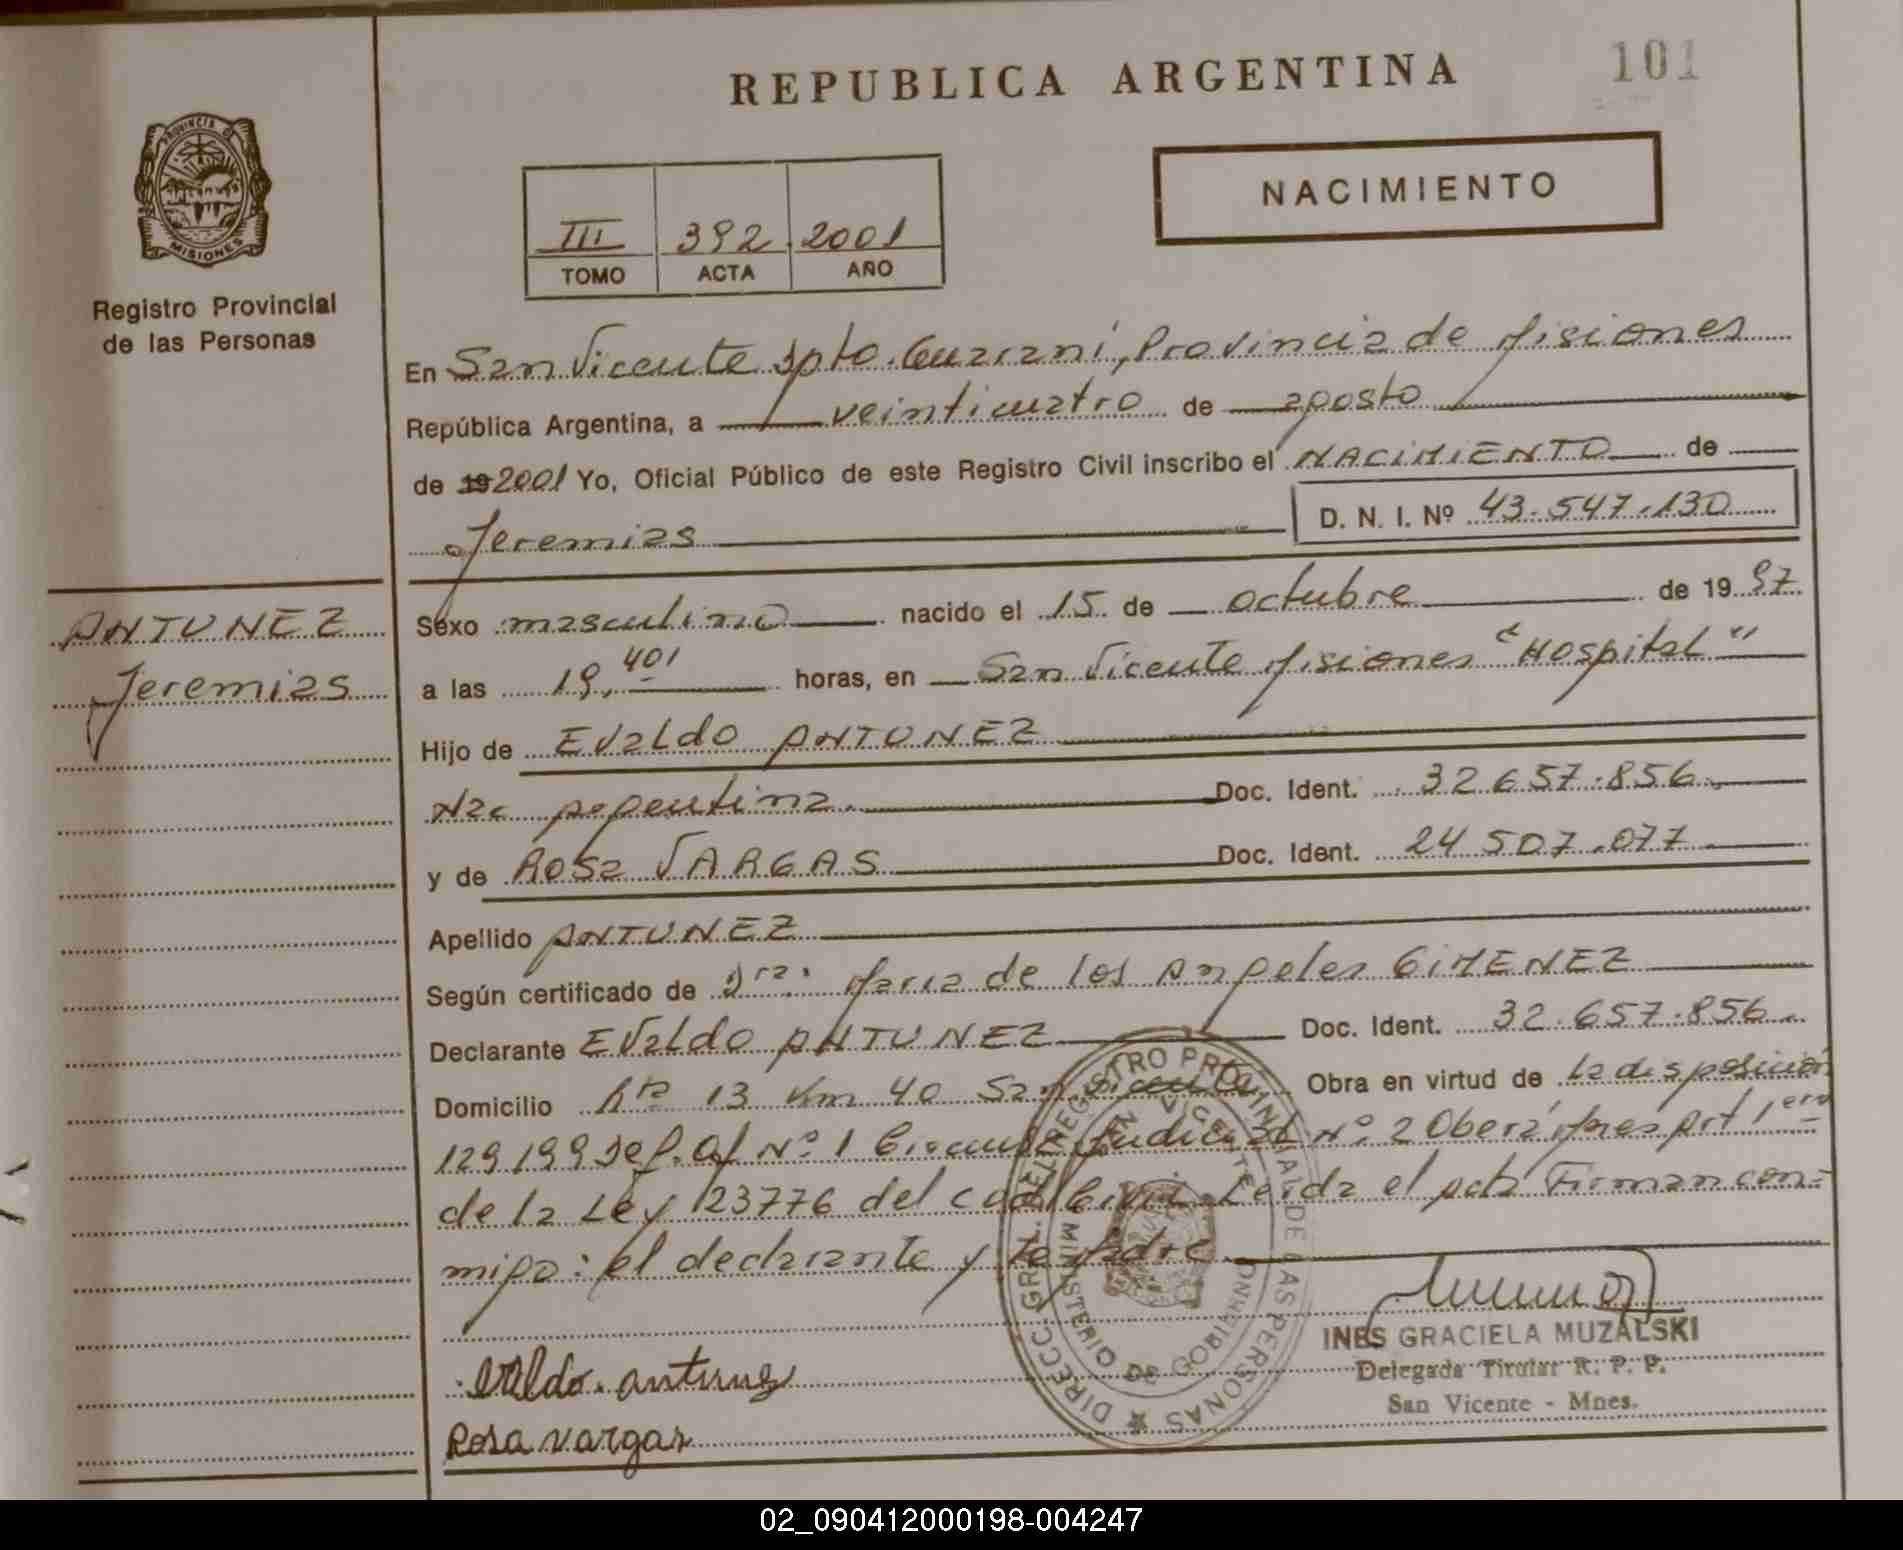 REPUBLICA ARGENTINA
101
PROVINCIA DE
MISIONES
Registro Provincial
de las Personas
III 392 2001
TOMO ACTA AÑO
NACIMIENTO
En San Vicente Dpto. Guaraní, Provincia de Misiones
República Argentina, a veinticuatro de agosto
de 19 2001 Yo, Oficial Público de este Registro Civil inscribo el NACIMIENTO de
Jeremias D. N. I. Nº 43.547.130
ANTUNEZ
Jeremias
Sexo masculino nacido el 15 de octubre de 19 97
a las 19,40' horas, en San Vicente Misiones "Hospital"
Hijo de Evaldo ANTUNEZ
Nac Argentina. Doc. Ident. 32.657.856
y de Rosa VARGAS Doc. Ident. 24 507.077
Apellido ANTUNEZ
Según certificado de Dra. Maria de los Angeles GIMENEZ
Declarante Evaldo ANTUNEZ Doc. Ident. 32.657.856
Domicilio Rta 13 Km 40 San Vicente Obra en virtud de la disposición
129 199 Def. Of Nº 1 Circuns. Judicial Nº 2 Oberá Mnes Art 1ero
de la Ley 23776 del Cod Civil. Leida el acta Firman con-
migo: el declarante y la Madre
DIRECC. GRAL. DEL REGISTRO PROVINCIAL DE LAS PERSONAS
SAN VICENTE
MINISTERIO DE GOBIERNO
Evaldo. antunez
Rosa Vargas
INES GRACIELA MUZALSKI
Delegada Titular R. P. P.
San Vicente - Mnes.
02_090412000198-004247